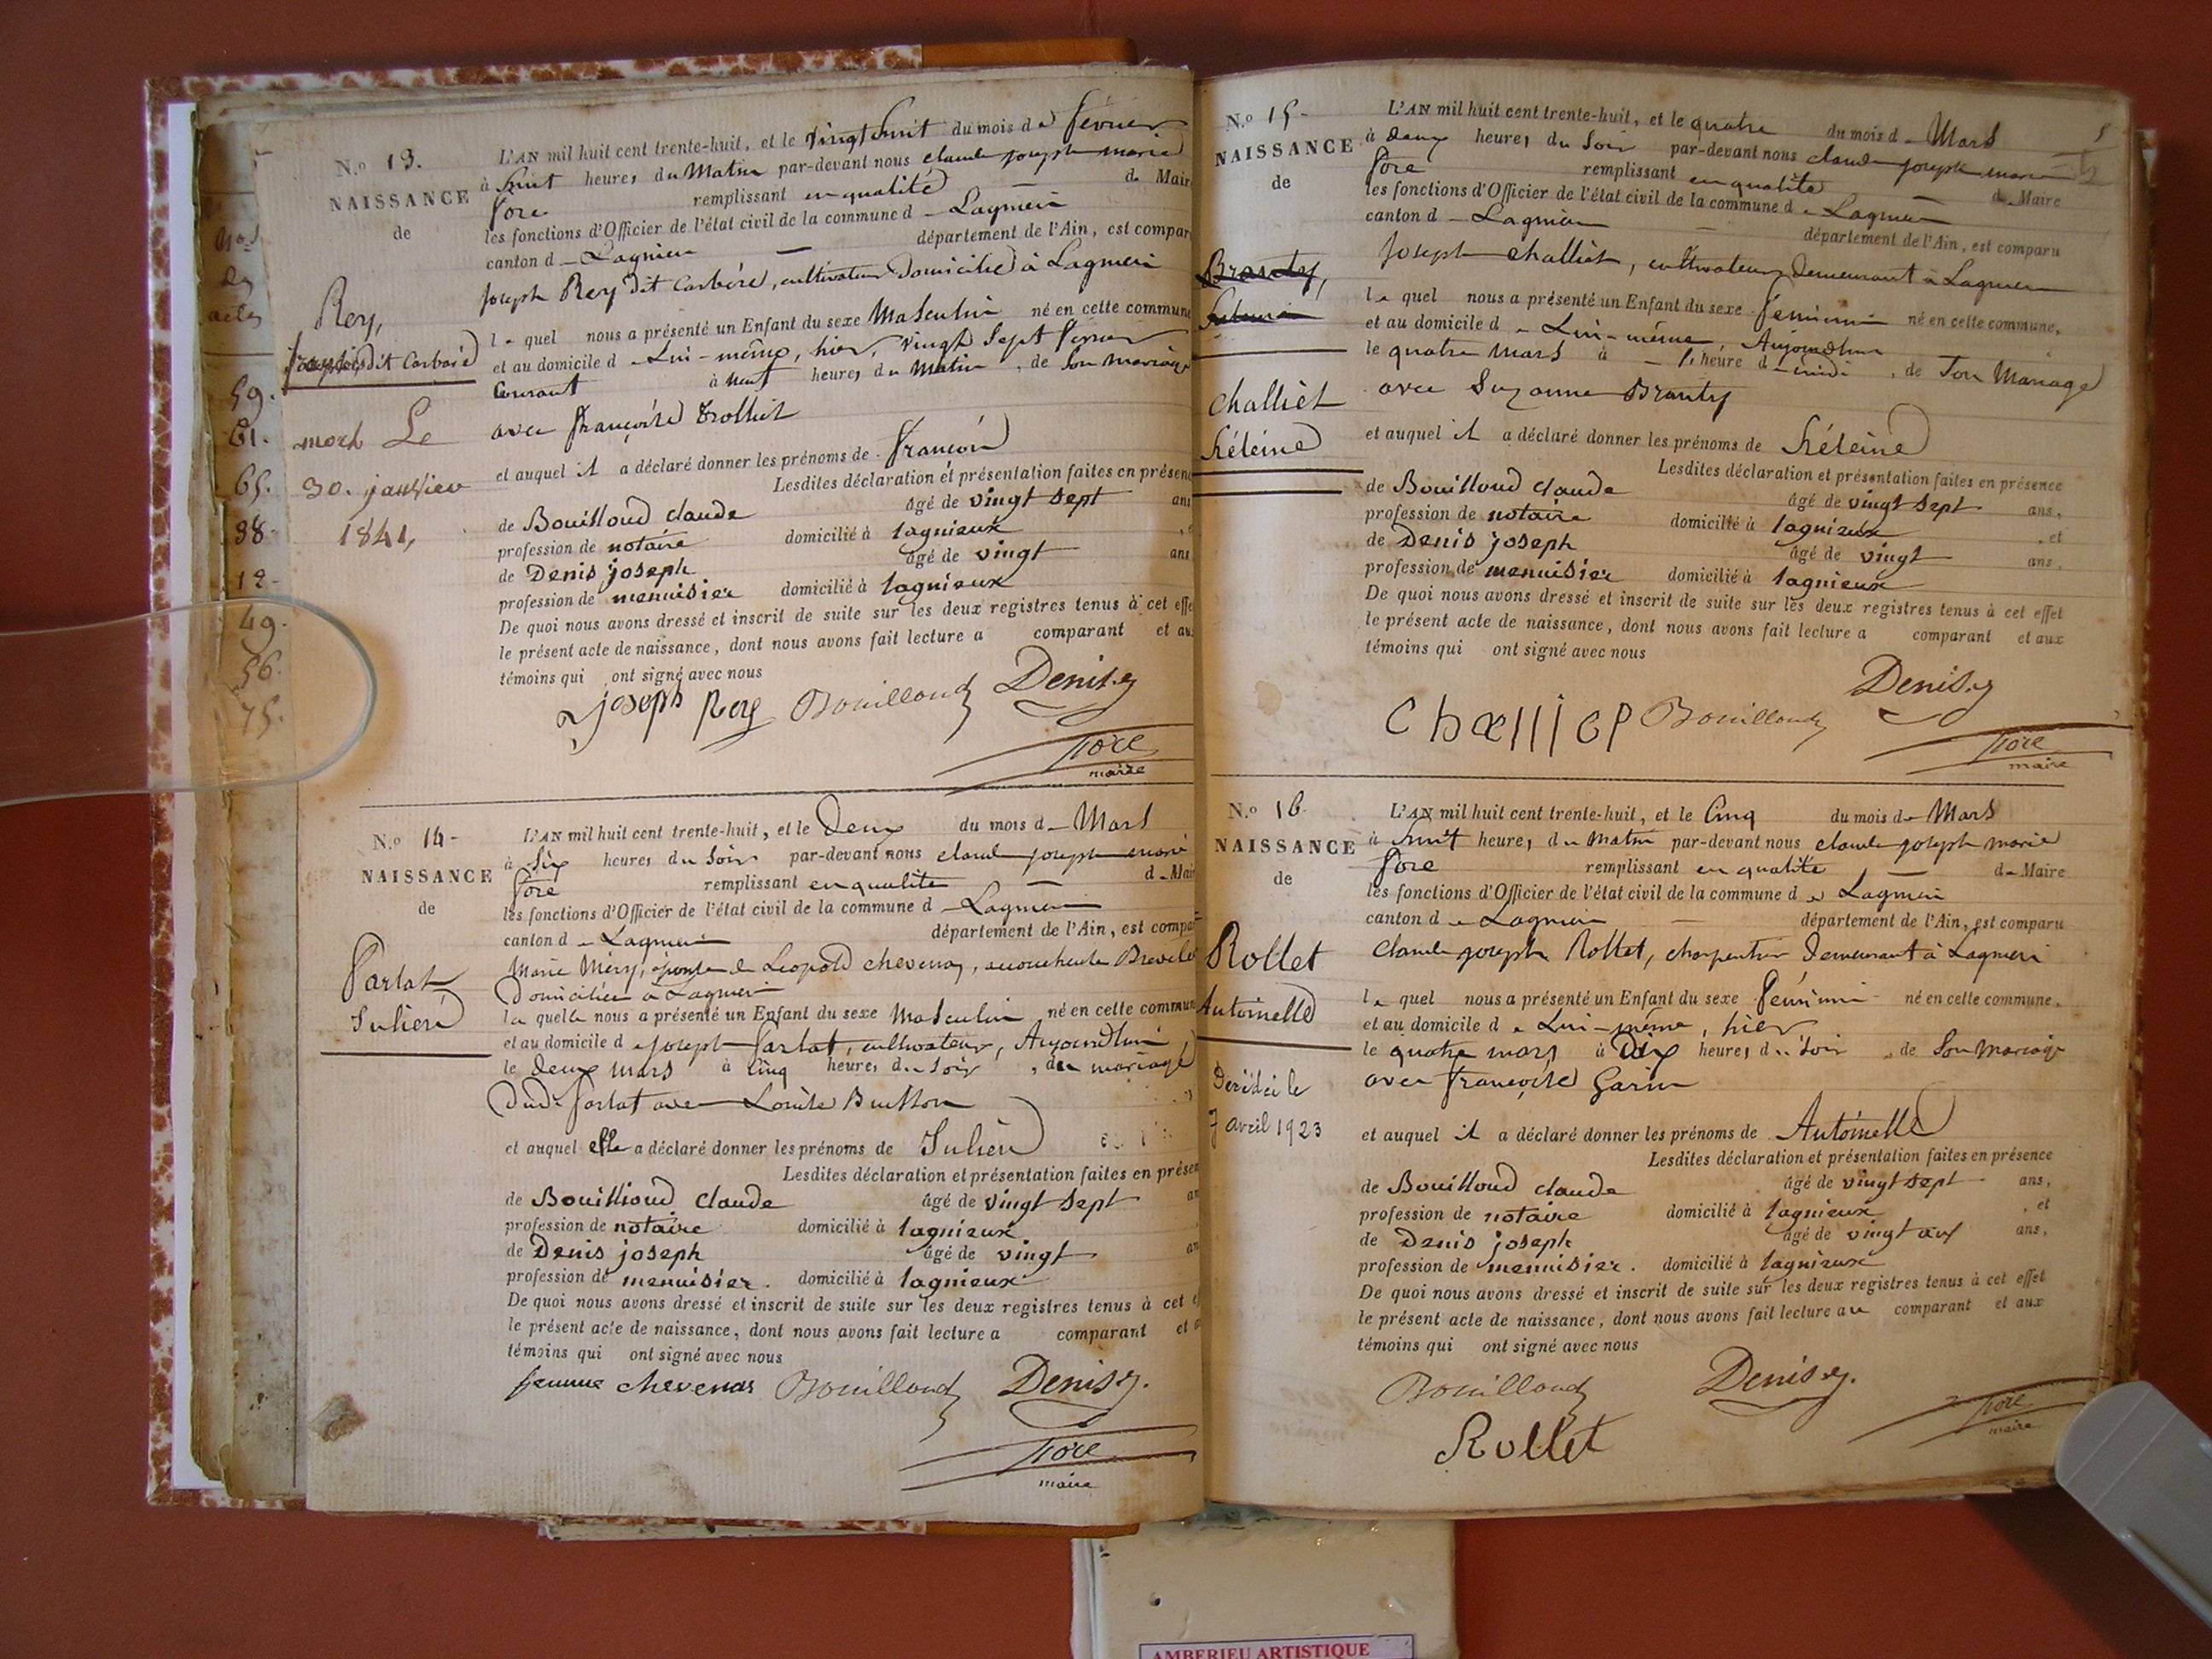 N.os
des
actes
59.
61.
65.
38.
12.
49.
56.
75.
N.o 13.
NAISSANCE
de
Rey,
françois, dit Carboré
mort Le
30. janvier
1841,
L'AN mil huit cent trente-huit, et le vingt huit du mois de février
à huit heures du Matin par-devant nous claude joseph marie
fore remplissant en qualité de Mair
les fonctions d'Officier de l'état civil de la commune d Lagnieu
canton d Lagnieu département de l'Ain, est compar
joseph Rey dit Carboré, cultivateur domicilié à Lagnieu
le quel nous a présenté un Enfant du sexe Masculin né en cette commune
et au domicile de Lui-même, hier, vingt Sept février
Courant à neuf heures du Matin, de Son mariage
avec françoise trolliet
et auquel il a déclaré donner les prénoms de françois
Lesdites déclaration et présentation faites en présen
de Bouilloud claude âgé de vingt sept ans
profession de notaire domicilié à lagnieux , e
de Denis joseph âgé de vingt ans
profession de menuisier domicilié à lagnieux
De quoi nous avons dressé et inscrit de suite sur les deux registres tenus à cet effe
le présent acte de naissance, dont nous avons fait lecture a comparant et au
témoins qui ont signé avec nous
joseph Rey Bouilloud Denis
fore
maire
N.o 14
NAISSANCE
de
Parlat
Julien
L'AN mil huit cent trente-huit, et le Deux du mois d Mars
à Six heures du Soir par-devant nous claude joseph marie
fore remplissant en qualité d Mair
les fonctions d'Officier de l'état civil de la commune d Lagnieu
canton de Lagnieu département de l'Ain, est compar
Marie Méry, épouse de Leopold chevenas, accoucheuse Brevetée
domiciliée à Lagnieu
la quelle nous a présenté un Enfant du sexe Masculin, né en cette commun
et au domicile de joseph Parlat, cultivateur, Aujourdhui
le deux mars à Cinq heures du Soir, du mariage
dudt Parlat avec Louise Buisson
et auquel elle a déclaré donner les prénoms de Julien
Lesdites déclaration et présentation faites en présen
de Bouilloud claude âgé de vingt sept an
profession de notaire domicilié à lagnieux
de Denis joseph âgé de vingt an
profession de menuisier. domicilié à lagnieux
De quoi nous avons dressé et inscrit de suite sur les deux registres tenus à cet e
le présent acte de naissance, dont nous avons fait lecture a comparant et a
témoins qui ont signé avec nous
femme chevenas Bouilloud Denis
fore
maire
5
N.o 15
NAISSANCE
de
Branty,
challiet
héleine
L'AN mil huit cent trente-huit, et le quatre du mois d Mars
à deux heures du Soir par-devant nous claude joseph marie
fore remplissant en qualité de Maire
les fonctions d'Officier de l'état civil de la commune de Lagnieu
canton d Lagnieu département de l'Ain, est comparu
joseph challiet, cultivateur demeurant à Lagnieu
le quel nous a présenté un Enfant du sexe féminin né en cette commune,
et au domicile de Lui-même, Aujourdhui
le quatre mars à heure de midi, de Son Mariage
avec Suzanne Branty
et auquel il a déclaré donner les prénoms de héleine
Lesdites déclaration et présentation faites en présence
de Bouilloud claude âgé de vingt sept ans,
profession de notaire domicilié à lagnieux , et
de Denis joseph âgé de vingt ans,
profession de menuisier domicilié à lagnieux
De quoi nous avons dressé et inscrit de suite sur les deux registres tenus à cet effet
le présent acte de naissance, dont nous avons fait lecture a comparant et aux
témoins qui ont signé avec nous
Challiet Bouilloud Denis
fore
maire
N.o 16
NAISSANCE
de
Rollet
Antoinette
Décédée le
7 avril 1923
L'AN mil huit cent trente-huit, et le Cinq du mois de Mars
à huit heures du Matin par-devant nous claude joseph marie
fore remplissant en qualité de Maire
les fonctions d'Officier de l'état civil de la commune de Lagnieu
canton de Lagnieu département de l'Ain, est comparu
Claude joseph Rollet, charpentier demeurant à Lagnieu
le quel nous a présenté un Enfant du sexe féminin né en cette commune,
et au domicile de Lui-même, hier
le quatre mars à Dix heures du Soir, de Son mariage
avec françoise Garin
et auquel il a déclaré donner les prénoms de Antoinette
Lesdites déclaration et présentation faites en présence
de Bouilloud claude âgé de vingt sept ans,
profession de notaire domicilié à lagnieux , et
de Denis joseph âgé de vingt ans,
profession de menuisier. domicilié à lagnieux
De quoi nous avons dressé et inscrit de suite sur les deux registres tenus à cet effet
le présent acte de naissance, dont nous avons fait lecture au comparant et aux
témoins qui ont signé avec nous
Bouilloud Denis
Rollet
fore
maire
AMBERIEU ARTISTIQUE